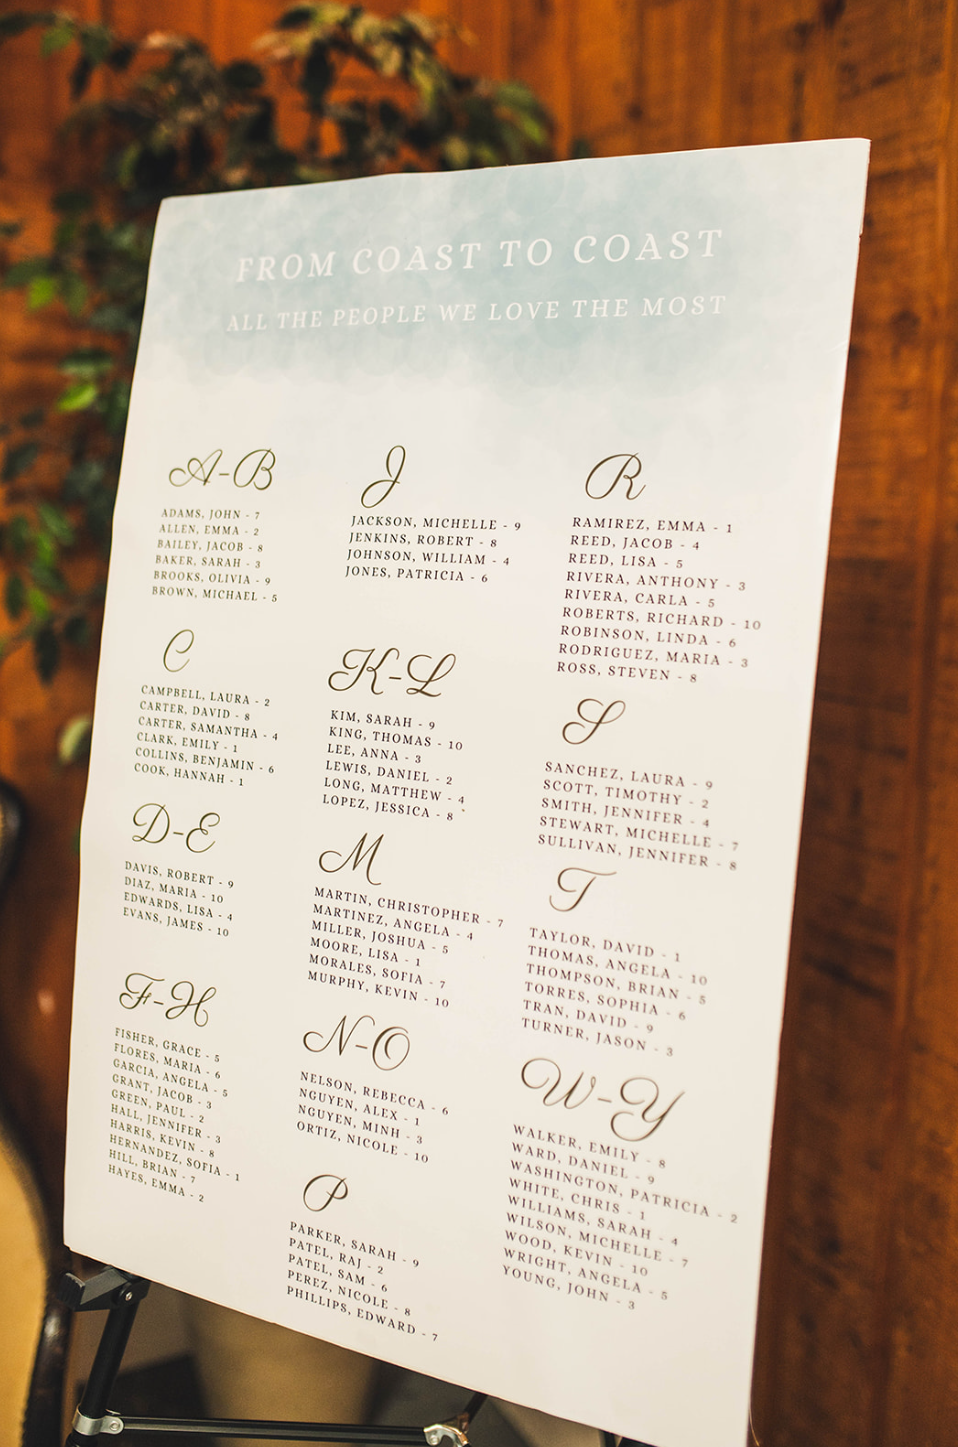 FROM COAST TO COAST
ALL THE PEOPLE WE LOVE THE MOST
A-B
ADAMS, JOHN - 7
ALLEN, EMMA - 2
BAILEY, JACOB - 8
BAKER, SARAH - 3
BROOKS, OLIVIA - 9
BROWN, MICHAEL - 5
C
CAMPBELL, LAURA - 2
CARTER, DAVID - 8
CARTER, SAMANTHA - 4
CLARK, EMILY - 1
COLLINS, BENJAMIN - 6
COOK, HANNAH - 1
D-E
DAVIS, ROBERT - 9
DIAZ, MARIA - 10
EDWARDS, LISA - 4
EVANS, JAMES - 10
F-H
FISHER, GRACE - 5
FLORES, MARIA - 6
GARCIA, ANGELA - 5
GRANT, JACOB - 3
GREEN, PAUL - 2
HALL, JENNIFER - 3
HARRIS, KEVIN - 8
HERNANDEZ, SOFIA - 1
HILL, BRIAN - 7
HAYES, EMMA - 2
J
JACKSON, MICHELLE - 9
JENKINS, ROBERT - 8
JOHNSON, WILLIAM - 4
JONES, PATRICIA - 6
K-L
KIM, SARAH - 9
KING, THOMAS - 10
LEE, ANNA - 3
LEWIS, DANIEL - 2
LONG, MATTHEW - 4
LOPEZ, JESSICA - 8
M
MARTIN, CHRISTOPHER - 7
MARTINEZ, ANGELA - 4
MILLER, JOSHUA - 5
MOORE, LISA - 1
MORALES, SOFIA - 7
MURPHY, KEVIN - 10
N-O
NELSON, REBECCA - 6
NGUYEN, ALEX - 1
NGUYEN, MINH - 3
ORTIZ, NICOLE - 10
P
PARKER, SARAH - 9
PATEL, RAJ - 2
PATEL, SAM - 6
PEREZ, NICOLE - 8
PHILLIPS, EDWARD - 7
R
RAMIREZ, EMMA - 1
REED, JACOB - 4
REED, LISA - 5
RIVERA, ANTHONY - 3
RIVERA, CARLA - 5
ROBERTS, RICHARD - 10
ROBINSON, LINDA - 6
RODRIGUEZ, MARIA - 3
ROSS, STEVEN - 8
S
SANCHEZ, LAURA - 9
SCOTT, TIMOTHY - 2
SMITH, JENNIFER - 4
STEWART, MICHELLE - 7
SULLIVAN, JENNIFER - 8
T
TAYLOR, DAVID - 1
THOMAS, ANGELA - 10
THOMPSON, BRIAN - 5
TORRES, SOPHIA - 6
TRAN, DAVID - 9
TURNER, JASON - 3
W-Y
WALKER, EMILY - 8
WARD, DANIEL - 9
WASHINGTON, PATRICIA - 2
WHITE, CHRIS - 1
WILLIAMS, SARAH - 4
WILSON, MICHELLE - 7
WOOD, KEVIN - 10
WRIGHT, ANGELA - 5
YOUNG, JOHN - 3